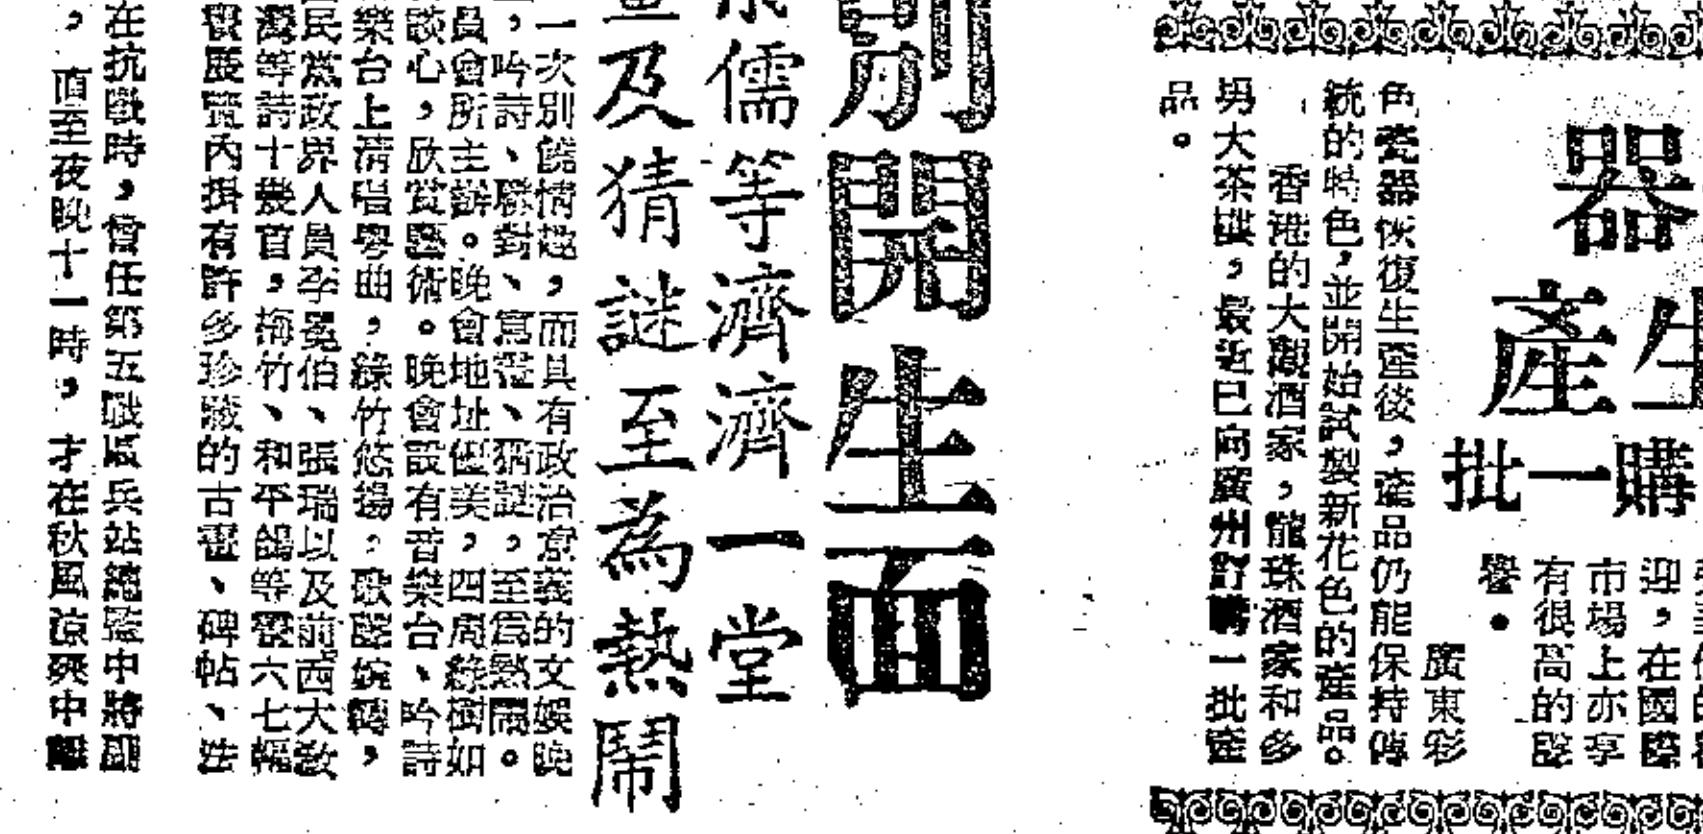 器
生產
購一批
迎，在國際
市場上亦享
有很高的聲
譽。
廣東彩
色瓷器恢復生產後，產品仍能保持傳
統的特色，並開始試製新花色的產品。
香港的大觀酒家，龍珠酒家和多
男大茶樓，最近已向廣州訂購一批產
品。
別開生面
儒等濟濟一堂
及猜謎至為熱鬧
一次別饒情趣，而具有政治意義的文娛晚
，吟詩、聯對、寫畫、猜謎，至爲熱鬧。
員會所主辦。晚會地址優美，四周綠樹如
談心，欣賞藝術。晚會設有音樂台、吟詩
樂台上清唱粵曲，絲竹悠揚，歌聲婉轉，
民黨政界人員李冕伯、張瑞以及前西大教
灣等詩十幾首，梅竹、和平鴿等畫六七幅
展覽內掛有許多珍藏的古畫、碑帖、法
在抗戰時，曾任第五戰區兵站總監中將副
，直至夜晚十一時，才在秋風涼爽中離